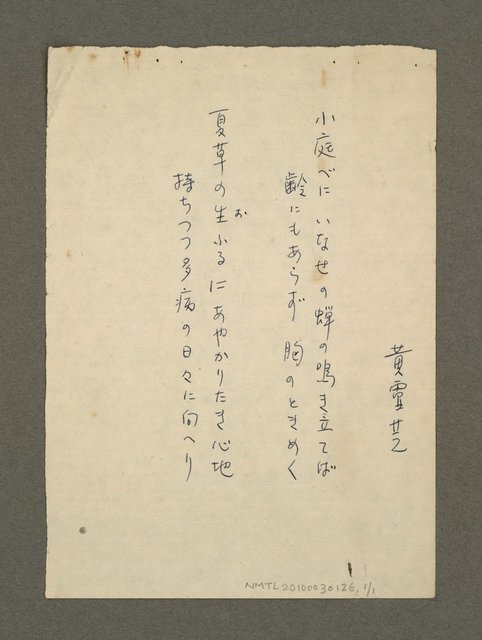 黄靈芝
小庭べに いなせの蝉の鳴き立てば
齢にもあらず 胸のときめく
夏草の生ふるにあやかりたき心地
お
持ちつつ多病の日々に向へり
NMTL20100030126, 1/1